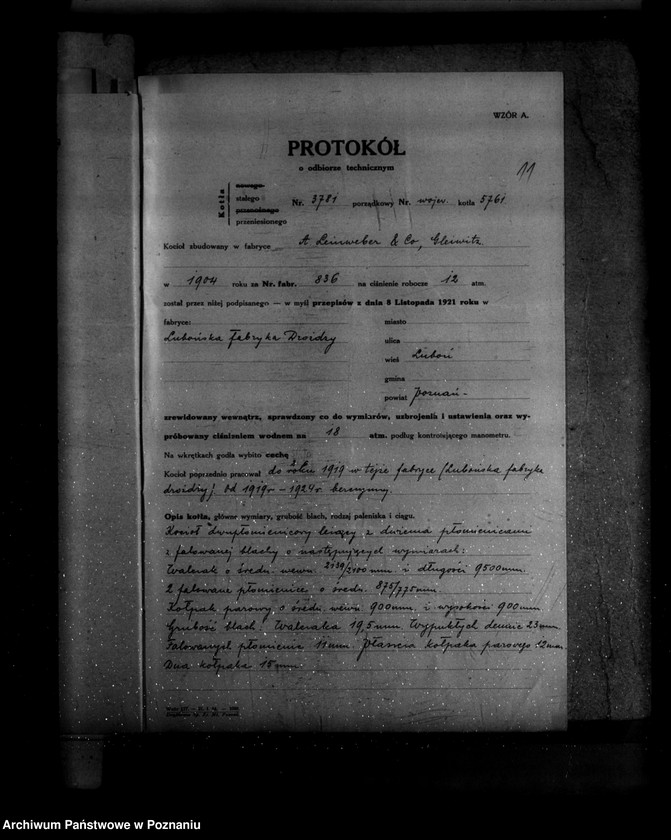 WZÓR A.
PROTOKÓŁ
o odbiorze technicznym
11
Kotła
nowego
stałego
przenośnego
przeniesionego
Nr. 3781 porządkowy Nr. wojew. kotła 5761
Kocioł zbudowany w fabryce A Leinweber & Co, Gleiwitz
w 1904 roku za Nr. fabr. 836 na ciśnienie robocze 12 atm.
został przez niżej podpisanego — w myśl przepisów z dnia 8 Listopada 1921 roku w
fabryce:
Lubońska Fabryka Drożdży
miasto
ulica
wieś Luboń
gmina
powiat Poznań-
zrewidowany wewnątrz, sprawdzony co do wymiarów, uzbrojenia i ustawienia oraz wy-
próbowany ciśnieniem wodnem na 18 atm. podług kontrolującego manometru.
Na wkrętkach godła wybito cechę
Kocioł poprzednio pracował do roku 1919 w tejże fabryce (Lubońska fabryka
drożdży). Od 1919r - 1924r bezczynny.
Opis kotła, główne wymiary, grubość blach, rodzaj paleniska i ciągu.
Kocioł dwupłomienicowy leżący z dwiema płomienicami
z falowanej blachy o następujących wymiarach:
Walczak o średn. wewn. 2139/2100 mm i długości 9500mm.
2 falowane płomienice o średn. 875/775 mm.
Kołpak parowy o średn. wewn 900mm. i wysokości 900mm
Grubość blach: Walczaka 19,5mm. Wypukłych dennic 23mm
Falowanych płomienic 11mm. Płaszcza kołpaka parowego 12mm
Dna kołpaka 15mm.
Archiwum Państwowe w Poznaniu